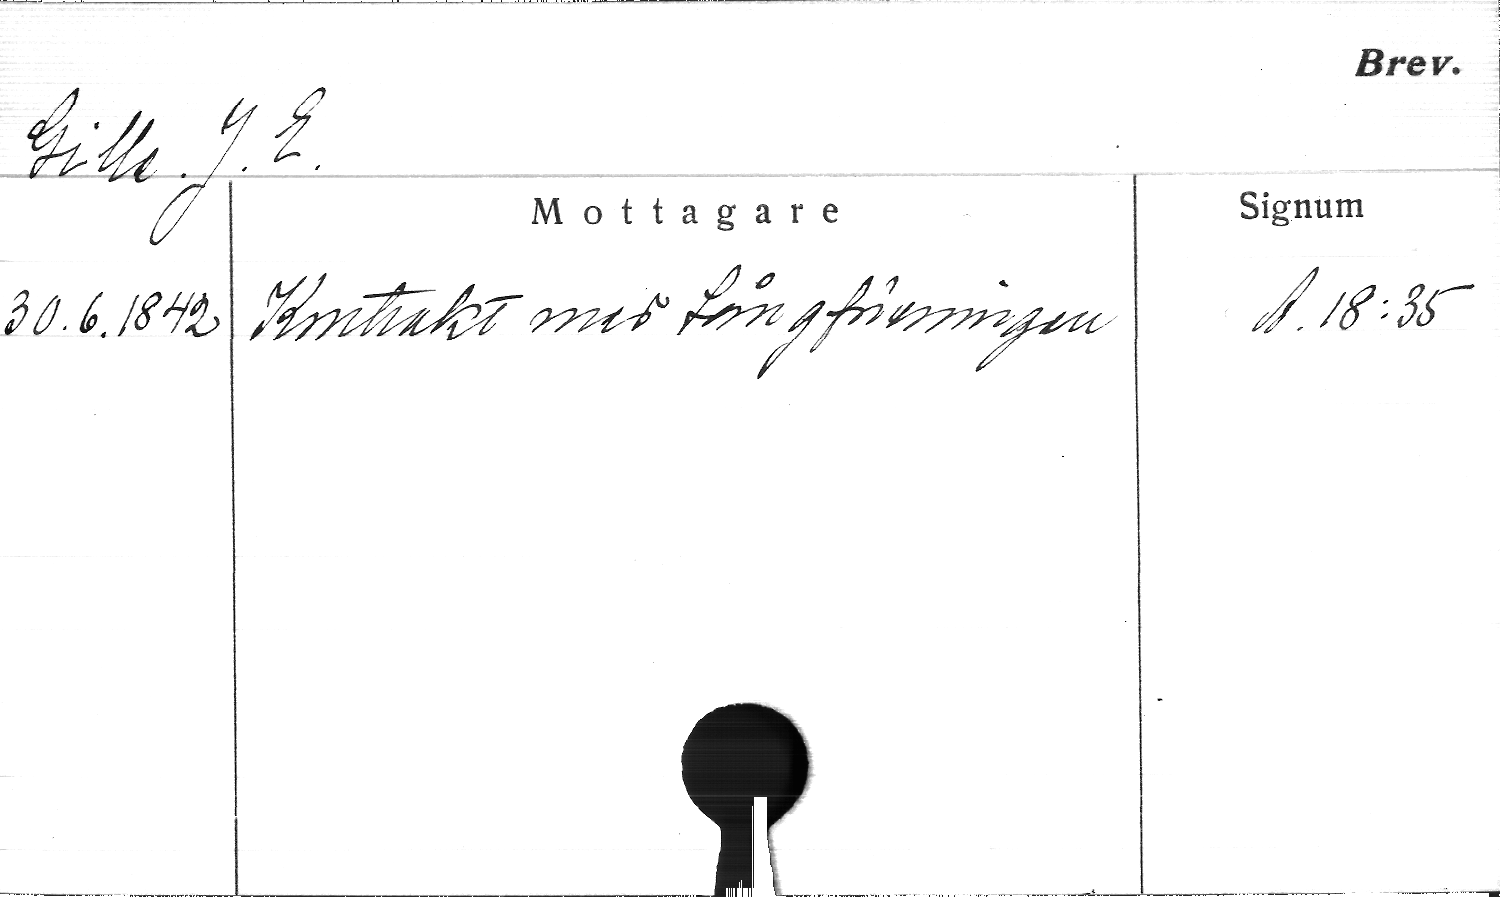 Brev.
Gille. J. E.
Mottagare Signum
30.6.1842 Kontrakt med Sångföreningen A. 18:35